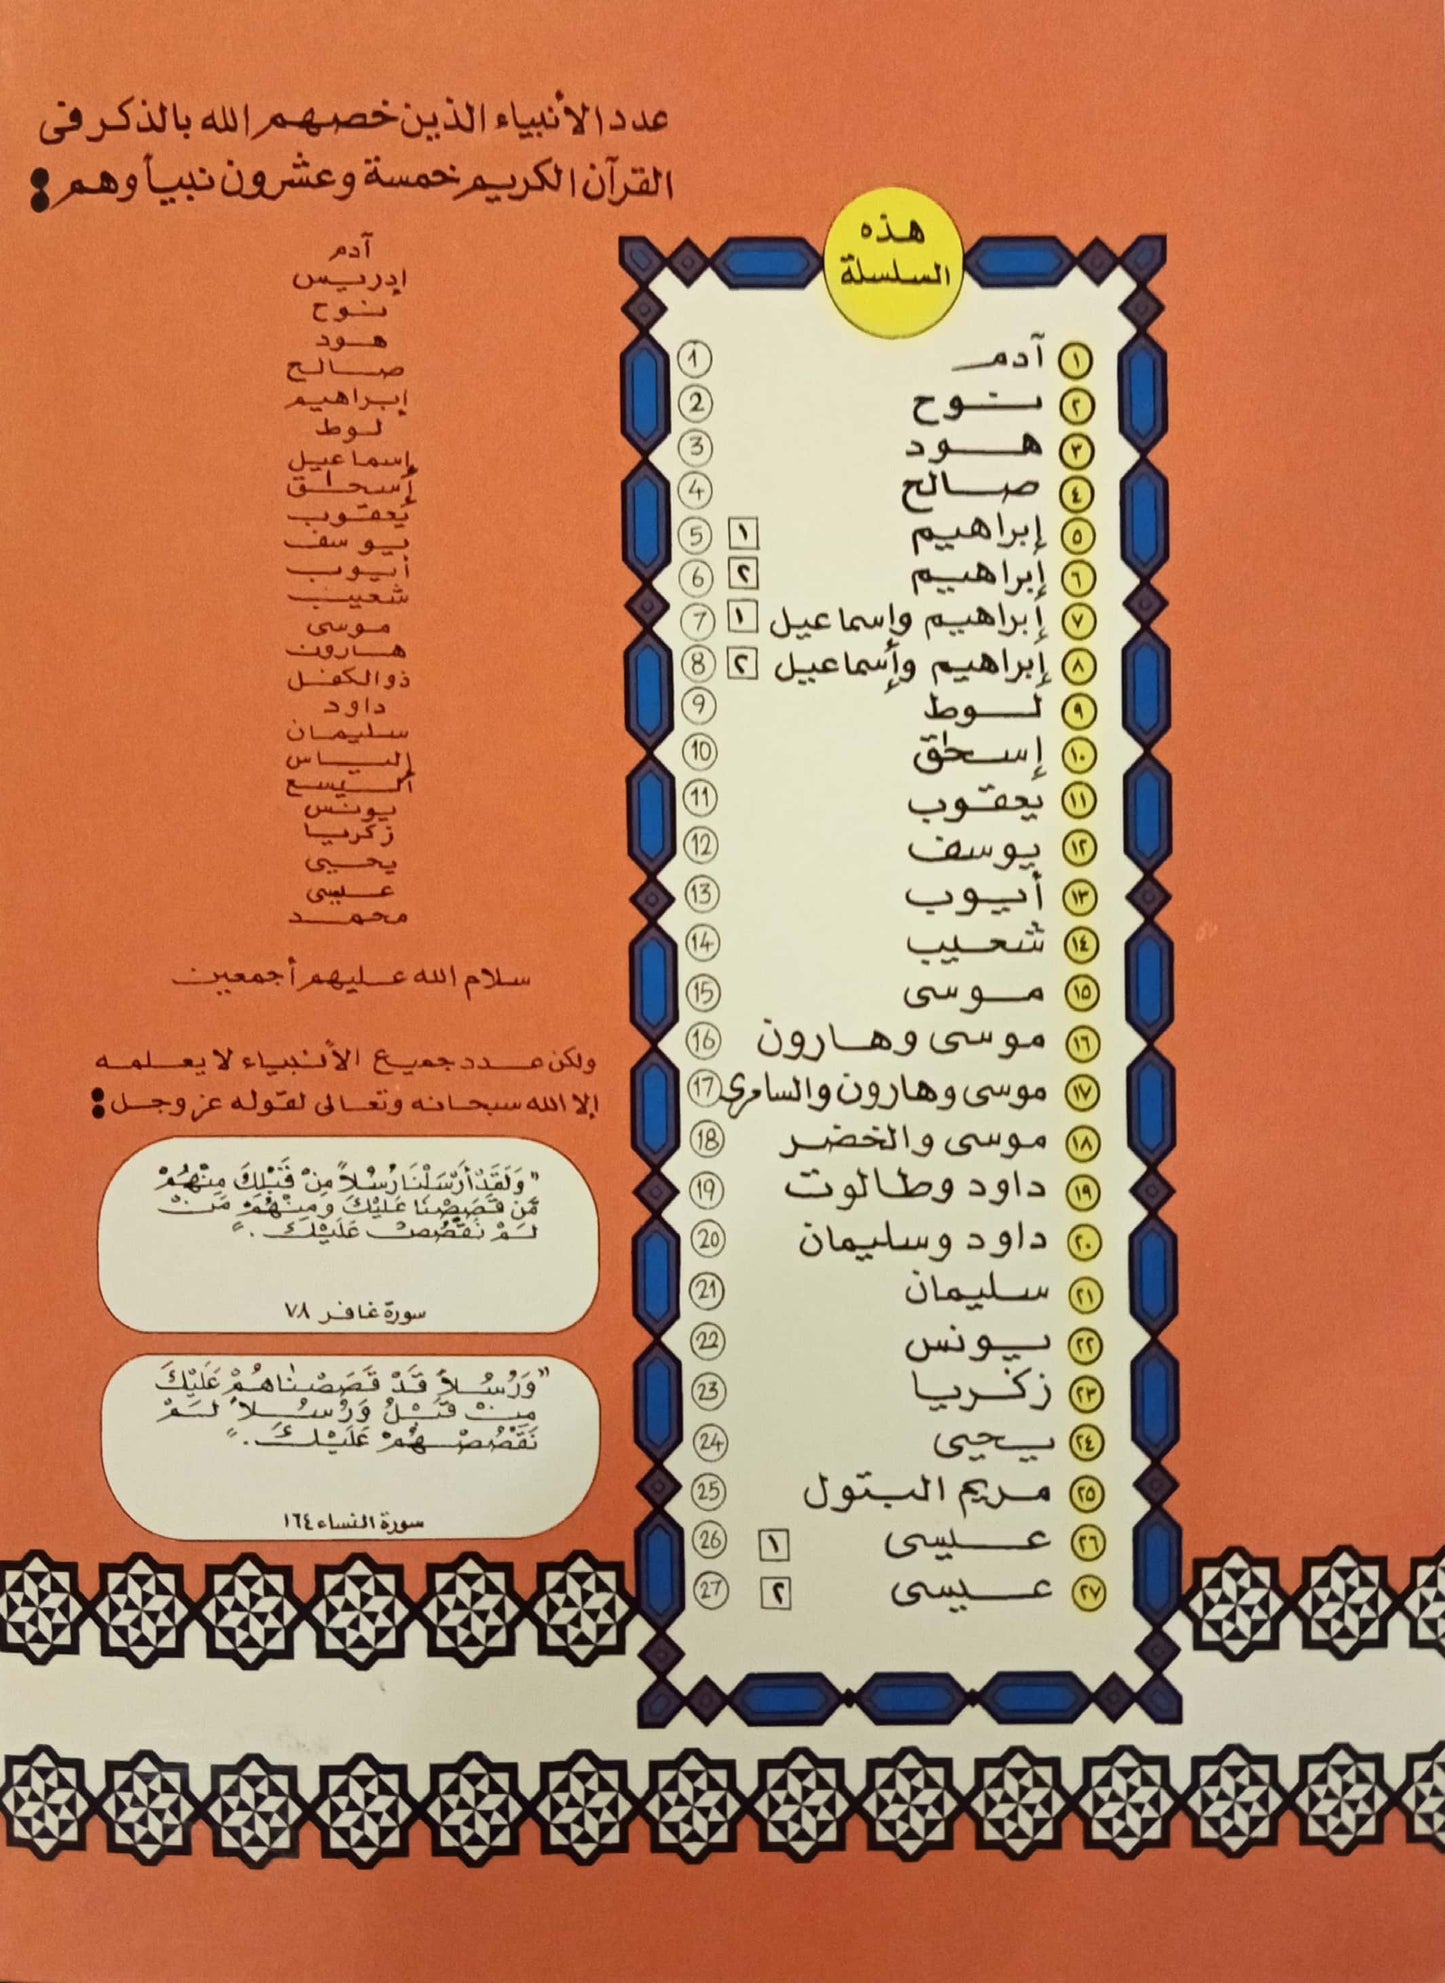 عدد الأنبياء الذين خصهم الله بالذكر فى
القرآن الكريم خمسة وعشرون نبياً وهم :
آدم
إدريس
نوح
هود
صالح
إبراهيم
لوط
إسماعيل
إسحاق
يعقوب
يوسف
أيوب
شعيب
موسى
هارون
ذو الكفل
داود
سليمان
إلياس
أليسع
يونس
زكريا
يحيى
عيسى
محمد
سلام الله عليهم أجمعين
ولكن عدد جميع الأنبياء لا يعلمه
إلا الله سبحانه وتعالى لقوله عز وجل :
"وَلَقَدْ أَرْسَلْنَا رُسُلاً مِنْ قَبْلِكَ مِنْهُمْ
مَّن قَصَصْنَا عَلَيْكَ وَمِنْهُمْ مَنْ
لَمْ نَقْصُصْ عَلَيْكَ ."
سورة غافر ٧٨
"وَرُسُلاً قَدْ قَصَصْنَاهُمْ عَلَيْكَ
مِنْ قَبْلُ وَرُسُلاً لَمْ
نَقْصُصْهُمْ عَلَيْكَ ."
سورة النساء ١٦٤
هذه
السلسلة
١ آدم 1
٢ نوح 2
٣ هود 3
٤ صالح 4
٥ إبراهيم ١ 5
٦ إبراهيم ٢ 6
٧ إبراهيم وإسماعيل ١ 7
٨ إبراهيم وأسماعيل ٢ 8
٩ لوط 9
١٠ إسحٰق 10
١١ يعقوب 11
١٢ يوسف 12
١٣ أيوب 13
١٤ شعيب 14
١٥ موسى 15
١٦ موسى وهارون 16
١٧ موسى وهارون والسامرى 17
١٨ موسى والخضر 18
١٩ داود وطالوت 19
٢٠ داود وسليمان 20
٢١ سليمان 21
٢٢ يونس 22
٢٣ زكريا 23
٢٤ يحيى 24
٢٥ مريم البتول 25
٢٦ عيسى ١ 26
٢٧ عيسى ٢ 27